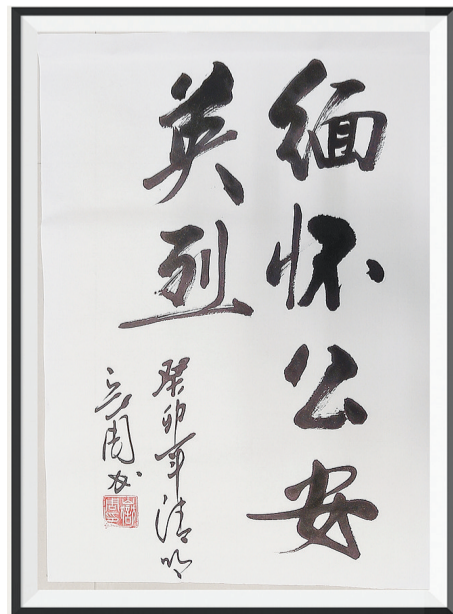 缅怀公安
英烈
癸卯年清明
立周书